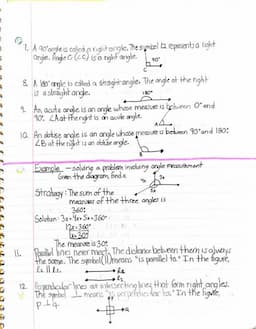 7. A 90° angle is called a right angle. The symbol ∟ represents a right
angle. Angle C (∠C) is a right angle.
90°
C
8. A 180° angle is called a straight angle. The angle at the right
is a straight angle.
180°
9. An acute angle is an angle whose measure is between 0° and
90°. ∠A at the right is an acute angle.
A
10. An obtuse angle is an angle whose measure is between 90° and 180°.
∠B at the right is an obtuse angle.
Example - solving a problem involving angle measurement
Given the diagram, find x
Strategy: The sum of the
measures of the three angles is
360°.
Solution: 3x+4x+5x=360°
12x=360°
x=30°
The measure is 30°.
11. Parallel lines never meet. The distance between them is always
the same. The symbol || means "is parallel to." In the figure,
12. Perpendicular lines are intersecting lines that form right angles.
The symbol ⊥ means "is perpendicular to." In the figure,
p⊥q.